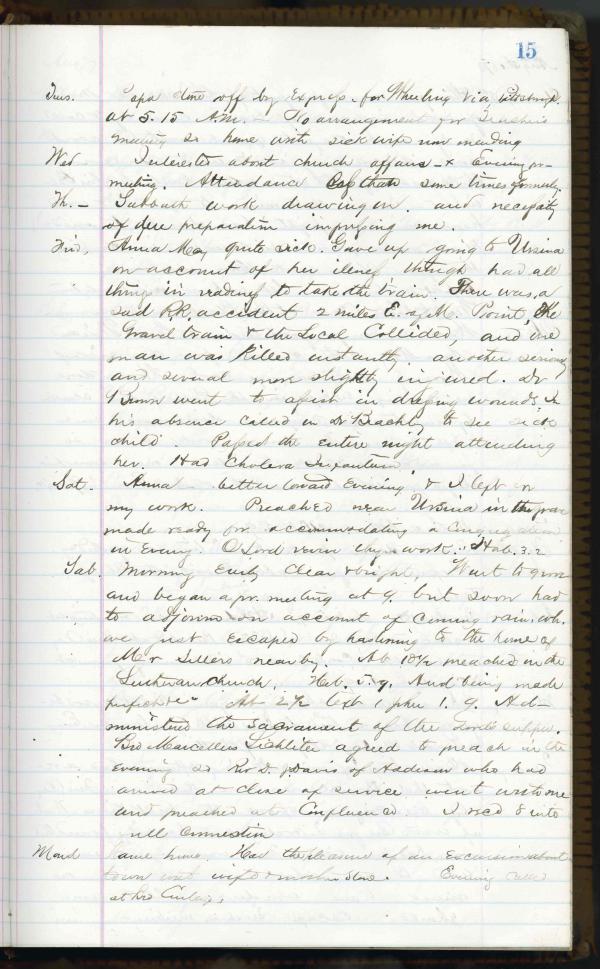 15
Tues. off by Express for Wheeling via Pittsburgh
at 5.15 A.M. - No arrangement for Teachers
meeting so home with sick wife now mending
Wed Interested about church affairs - & Evening pr-
meeting. Attendance less than some times formerly.
Th. - Sabbath work drawing on. and necessity
of due preparation impressing me.
Frid, Anna May quite sick. Gave up going to Ursina
on account of her illness though had all
things in readiness to take the train. There was a
sad R.R. accident 2 miles E. of M. Point, The
Gravel train & the Local Collided, and one
man was killed instantly. another seriously
and several more slightly injured. Dr
went to assist in dressing wounds, In
his absence called in Dr Beachley to see sick
child. Passed the entire night attending
her. Had Cholera Infantum.
Sat. Anna better toward Evening & I left on
my work. Preached near Ursina in the grove
made ready for accommodating a Congregation
in Evening. O Lord revive thy work." Hab. 3.2
Sab. Morning Early Clear & bright. Went to grove
and began a pr. meeting at 9. but soon had
to adjourn on account of coming rain, wh.
we just escaped by hastening to the home of
Mr Sellers nearby. At 10½ preached in the
Lutheran Church. Heb. 5.9. And being made
perfect &c" At 2½ text 1 1.9. Ad-
ministered the Sacrament of the Lord's supper.
Bro Marcellus Lichliter agreed to preach in the
Evening so Rev D. Davis of Addison who had
arrived at close of service went with me
and preached at Confluence. I rec'd 8 into
full Connection
Mond Came home. Had the pleasure of an Excursion about
town with wife & mother Evening called
at Bro